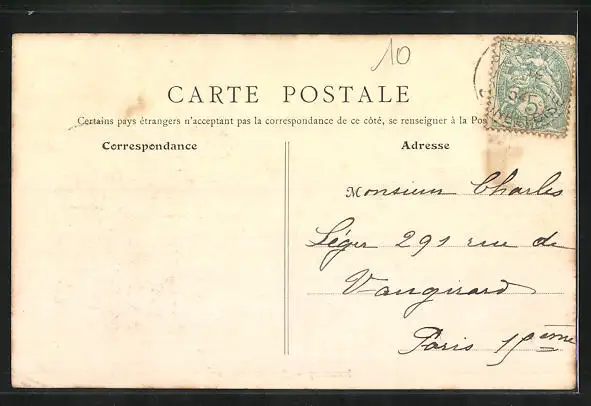 10
CARTE POSTALE
Certains pays étrangers n'acceptant pas la correspondance de ce côté, se renseigner à la Pos
Correspondance
Adresse
5
Monsieur Charles
Léger 291 rue de
Vaugirard
Paris 15ème